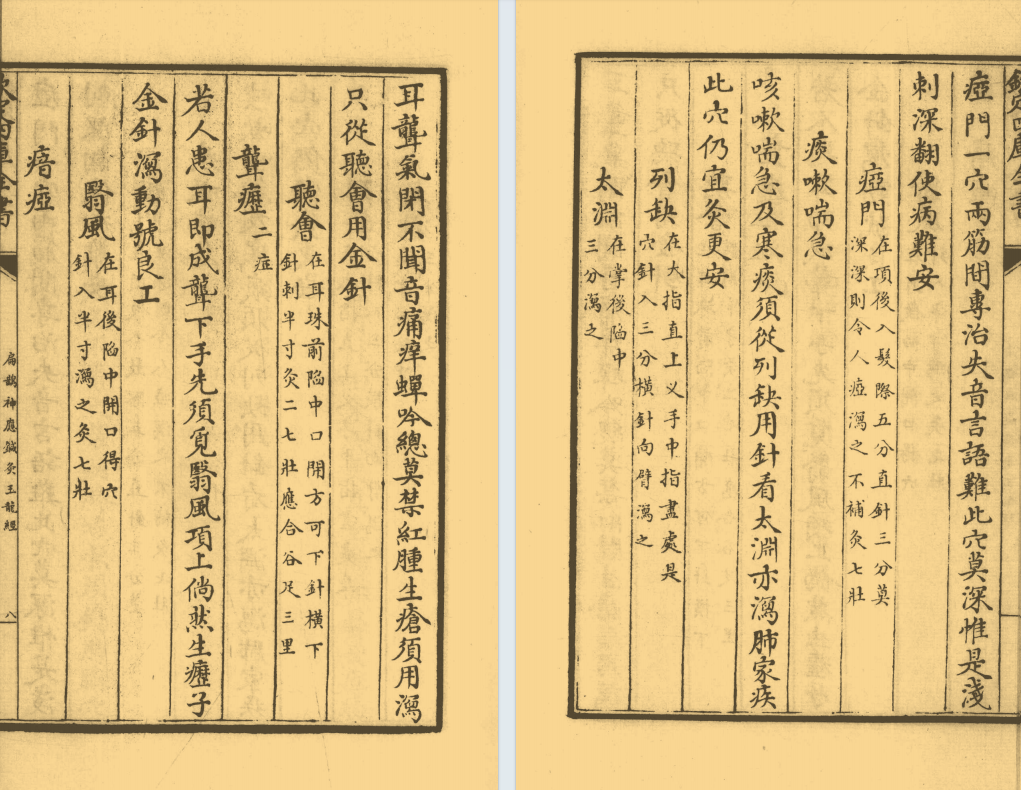 耳聾氣閉不聞音痛痒蟬吟總莫禁紅腫生瘡須用瀉
只從聽會用金針
聽會
在耳珠前陷中口開方可下針橫下
針刺半寸灸二七壯應合谷足三里
聾癧二症
若人患耳即成聾下手先須覓翳風項上倘然生癧子
金針瀉動號良工
翳風
在耳後陷中開口得穴
針入半寸瀉之灸七壯
瘖瘂
扁鵲神應鍼灸玉龍經
八
瘂門一穴兩筋間專治失音言語難此穴莫深惟是淺
刺深翻使病難安
瘂門
在項後入髮際五分直針三分莫
深深則令人瘂瀉之不補灸七壯
痰嗽喘急
咳嗽喘急及寒痰須從列缺用針看太淵亦瀉肺家疾
此穴仍宜灸更安
列缺
在大指直上义手中指盡處是
穴針入三分橫針向臂瀉之
太淵
在掌後陷中
三分瀉之